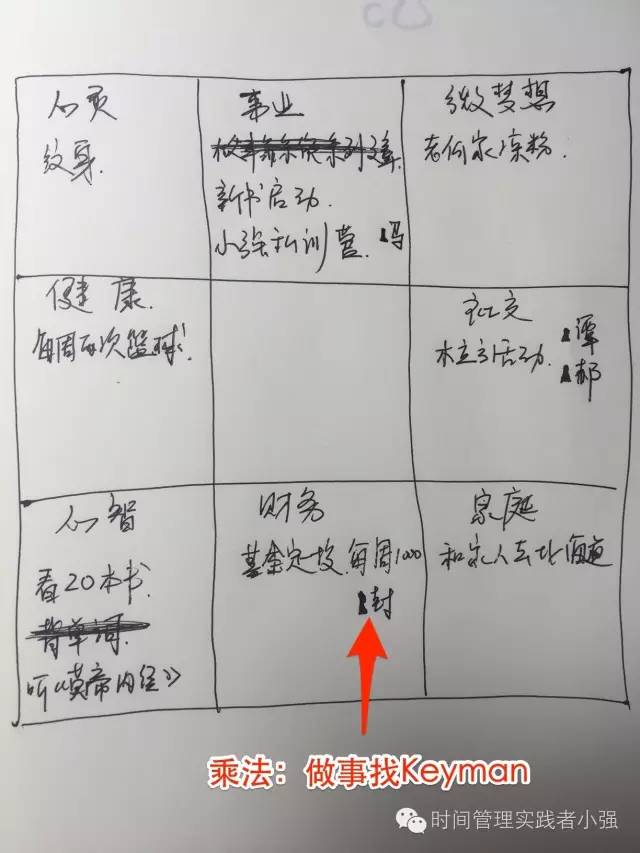 心灵
纹身.
事业
新书启动.
小强私训营. 冯
微梦想
老何家凉粉.
健康.
每周两次篮球!
社交
活动. 谭
郝
心智
看20本书.
背单词.
听《黄帝内经》
财务
基金定投.每周1000
封
家庭
和家人去北海道
乘法：做事找Keyman
时间管理实践者小强